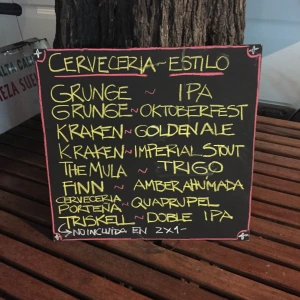 CERVECERIA ~ ESTILO
GRUNGE ~ IPA
GRUNGE ~ OKTOBERFEST
KRAKEN ~ GOLDEN ALE
KRAKEN ~ IMPERIAL STOUT
THE MULA ~ TRIGO
FINN ~ AMBER AHUMADA
CERVECERIA PORTEÑA ~ QUADRUPEL
TRISKELL ~ DOBLE IPA
NO INCLUIDA EN 2X1